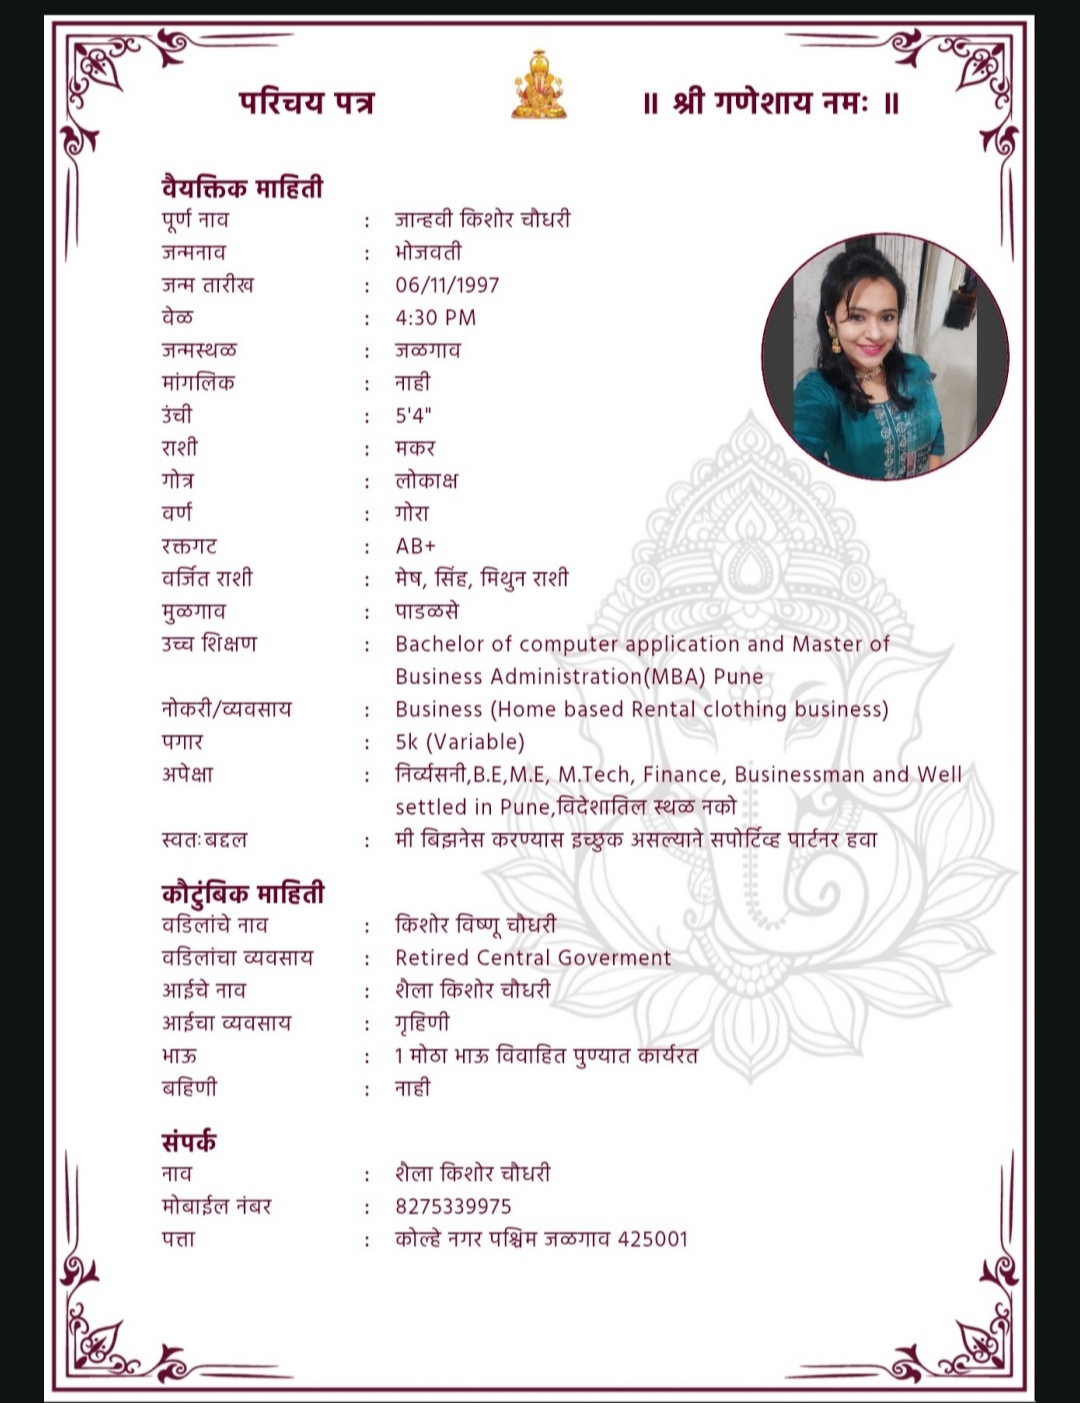 परिचय पत्र
॥ श्री गणेशाय नमः ॥
वैयक्तिक माहिती
पूर्ण नाव : जान्हवी किशोर चौधरी
जन्मनाव : भोजवती
जन्म तारीख : 06/11/1997
वेळ : 4:30 PM
जन्मस्थळ : जळगाव
मांगलिक : नाही
उंची : 5'4"
राशी : मकर
गोत्र : लोकाक्ष
वर्ण : गोरा
रक्तगट : AB+
वर्जित राशी : मेष, सिंह, मिथुन राशी
मुळगाव : पाडळसे
उच्च शिक्षण : Bachelor of computer application and Master of
Business Administration(MBA) Pune
नोकरी/व्यवसाय : Business (Home based Rental clothing business)
पगार : 5k (Variable)
अपेक्षा : निर्व्यसनी,B.E,M.E, M.Tech, Finance, Businessman and Well
settled in Pune,विदेशातिल स्थळ नको
स्वतःबद्दल : मी बिझनेस करण्यास इच्छुक असल्याने सपोर्टिव्ह पार्टनर हवा
कौटुंबिक माहिती
वडिलांचे नाव : किशोर विष्णू चौधरी
वडिलांचा व्यवसाय : Retired Central Goverment
आईचे नाव : शैला किशोर चौधरी
आईचा व्यवसाय : गृहिणी
भाऊ : 1 मोठा भाऊ विवाहित पुण्यात कार्यरत
बहिणी : नाही
संपर्क
नाव : शैला किशोर चौधरी
मोबाईल नंबर : 8275339975
पत्ता : कोल्हे नगर पश्चिम जळगाव 425001